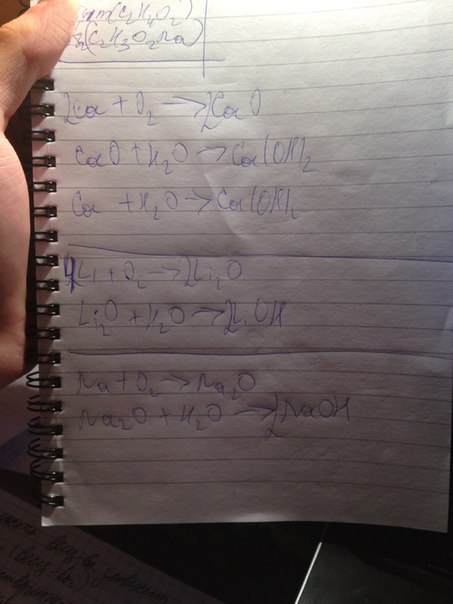 m(C₂H₄O₂)
(C₂H₃O₂Na)
2Ca + O₂ → 2CaO
CaO + H₂O → Ca(OH)₂
Ca + H₂O → Ca(OH)₂
4Li + O₂ → 2Li₂O
Li₂O + H₂O → 2LiOH
Na + O₂ → Na₂O
Na₂O + H₂O → 2NaOH